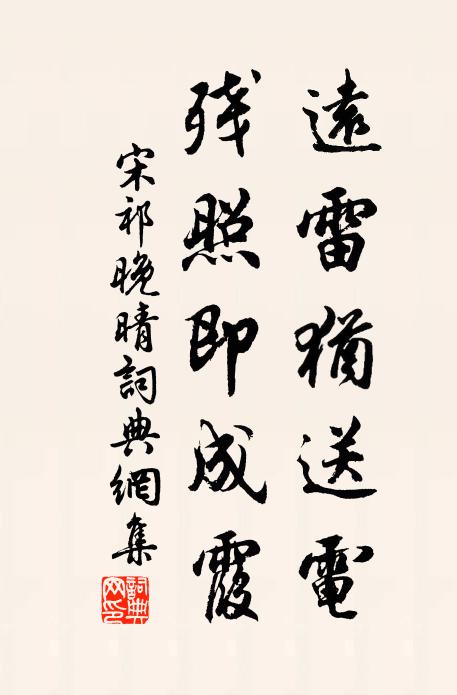 遠雷猶送電
残照即成霞
宋祁晚晴詞典網集
詞典網印